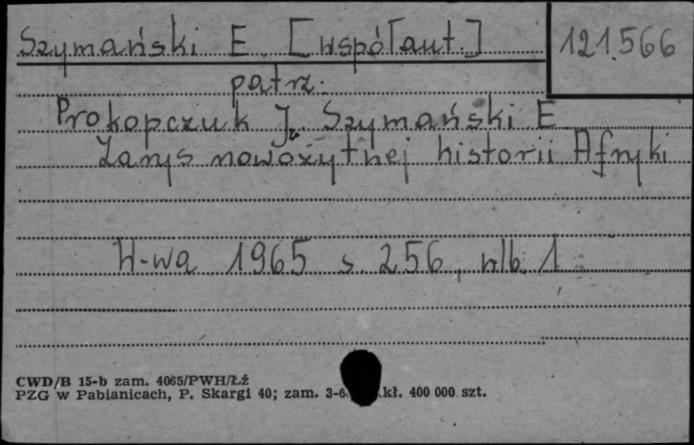 Szymański E. [współaut.] 121.566
patrz:
Prokopczuk J., Szymański E
Zarys nowożytnej historii Afryki
W-wa 1965 s. 256, nlb. 1
CWD/B 15-b zam. 4065/PWH/ŁŹ
PZG w Pabianicach, P. Skargi 40; zam. kł. 400 000 szt.